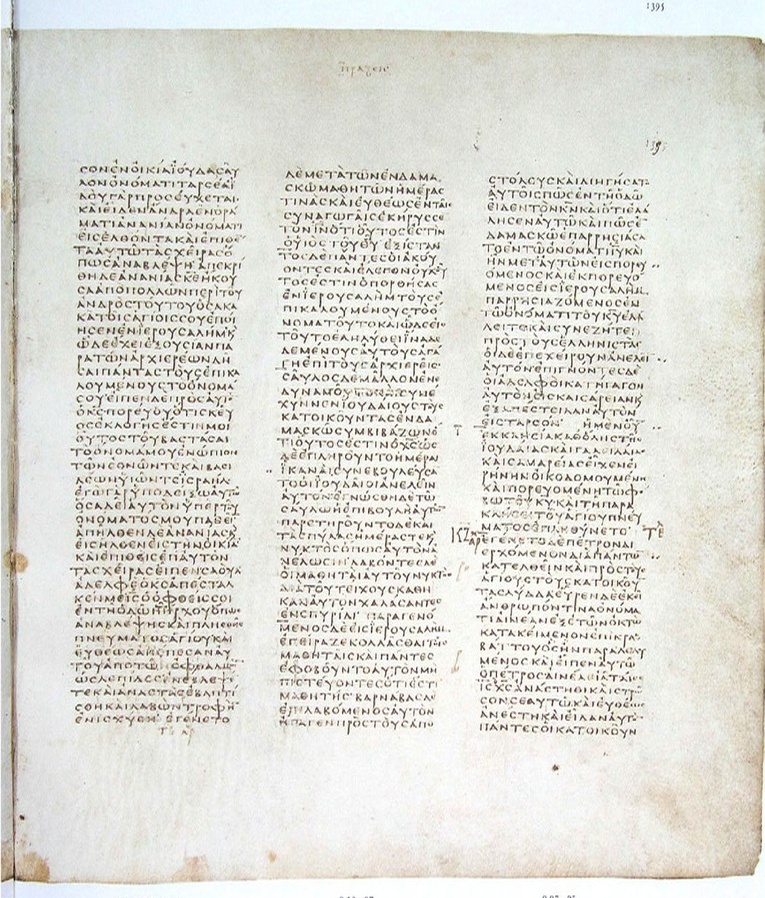 ΠΡΑΞΕΙΣ
ϹΟΝΕΝΟΙΚΙΑΪΟΥΔΑϹΑΥ
ΛΟΝΟΝΟΜΑΤΙΤΑΡϹΕΑΪ
ΔΟΥΓΑΡΠΡΟϹΕΥΧΕΤΑΙ
ΚΑΙΕΙΔΕΝΑΝΔΡΑΕΝΟΡΑ
ΜΑΤΙΑΝΑΝΙΑΝΟΝΟΜΑΤΙ
ΕΙϹΕΛΘΟΝΤΑΚΑΙΕΠΙΘΕ
ΤΑΑΥΤΩΤΑϹΧΕΙΡΑϹΟ
ΠΩϹΑΝΑΒΛΕΨΗΑΠΕΚΡΙ
ΘΗΔΕΑΝΑΝΙΑϹΚΕΗΚΟΥ
ϹΑΑΠΟΠΟΛΛΩΝΠΕΡΙΤΟΥ
ΑΝΔΡΟϹΤΟΥΤΟΥΟϹΑΚΑ
ΚΑΤΟΙϹΑΓΙΟΙϹϹΟΥΕΠΟΙ
ΗϹΕΝΕΝΪΕΡΟΥϹΑΛΗΜΚ
ΩΔΕΕΧΕΙΕΞΟΥϹΙΑΝΠΑ
ΡΑΤΩΝΑΡΧΙΕΡΕΩΝΔΗ
ϹΑΙΠΑΝΤΑϹΤΟΥϹΕΠΙΚΑ
ΛΟΥΜΕΝΟΥϹΤΟΟΝΟΜΑ
ϹΟΥΕΙΠΕΝΔΕΠΡΟϹΑΥΤΟ
ΟΚϹΠΟΡΕΥΟΥΟΤΙϹΚΕΥ
ΟϹΕΚΛΟΓΗϹΕϹΤΙΝΜΟΙ
ΟΥΤΟϹΤΟΥΒΑϹΤΑϹΑΙ
ΤΟΟΝΟΜΑΜΟΥΕΝΩΠΙΟ
ΤΩΝΕΘΝΩΝΤΕΚΑΙΒΑϹΙ
ΛΕΩΝΥΙΩΝΤΕΙϹΡΑΗΛ
ΕΓΩΓΑΡΥΠΟΔΕΙΞΩΑΥΤΩ
ΟϹΑΔΕΙΑΥΤΟΝΥΠΕΡΤΟΥ
ΟΝΟΜΑΤΟϹΜΟΥΠΑΘΕΙ
ΑΠΗΛΘΕΝΔΕΑΝΑΝΙΑϹΚ
ΕΙϹΗΛΘΕΝΕΙϹΤΗΝΟΙΚΙΑ
ΚΑΙΕΠΙΘΕΙϹΕΠΑΥΤΟΝ
ΤΑϹΧΕΙΡΑϹΕΙΠΕΝϹΑΟΥΛ
ΑΔΕΛΦΕΟΚϹΑΠΕϹΤΑΛ
ΚΕΝΜΕΙϹΟΟΦΘΕΙϹϹΟΙ
ΕΝΤΗΟΔΩΗΗΡΧΟΥΟΠΩϹ
ΑΝΑΒΛΕΨΗϹΚΑΙΠΛΗϹΘΗϹ
ΠΝΕΥΜΑΤΟϹΑΓΙΟΥΚΑΙ
ΕΥΘΕΩϹΑΠΕΠΕϹΑΝΑΥ
ΤΟΥΑΠΟΤΩΝΟΦΘΑΛΜΩ
ΩϹΛΕΠΙΔΕϹΑΝΕΒΛΕΨΕ
ΤΕΚΑΙΑΝΑϹΤΑϹΕΒΑΠΤΙ
ϹΘΗΚΑΙΛΑΒΩΝΤΡΟΦΗ
ΕΝΙϹΧΥΘΗΕΓΕΝΕΤΟ
ΔΕΜΕΤΑΤΩΝΕΝΔΑΜΑ
ϹΚΩΜΑΘΗΤΩΝΗΜΕΡΑϹ
ΤΙΝΑϹΚΑΙΕΥΘΕΩϹΕΝΤΑΙϹ
ϹΥΝΑΓΩΓΑΙϹΕΚΗΡΥϹϹΕ
ΤΟΝΙΝΟΤΙΟΥΤΟϹΕϹΤΙΝ
ΟΥΙΟϹΤΟΥΘΥΕΞΙϹΤΑΝ
ΤΟΔΕΠΑΝΤΕϹΟΙΑΚΟΥ
ΟΝΤΕϹΚΑΙΕΛΕΓΟΝΟΥΧΟΥ
ΤΟϹΕϹΤΙΝΟΠΟΡΘΗϹΑϹ
ΕΝΙΕΡΟΥϹΑΛΗΜΤΟΥϹΕ
ΠΙΚΑΛΟΥΜΕΝΟΥϹΤΟΟ
ΝΟΜΑΤΟΥΤΟΚΑΙΩΔΕΕΙϹ
ΤΟΥΤΟΕΛΗΛΥΘΕΙΙΝΑΔΕ
ΔΕΜΕΝΟΥϹΑΥΤΟΥϹΑΓΑ
ΓΗΕΠΙΤΟΥϹΑΡΧΙΕΡΕΙϹ
ϹΑΥΛΟϹΔΕΜΑΛΛΟΝΕΝΕ
ΔΥΝΑΜΟΥΤΟΚΑΙϹΥΝΕ
ΧΥΝΝΕΝΙΟΥΔΑΙΟΥϹΤΟΥϹ
ΚΑΤΟΙΚΟΥΝΤΑϹΕΝΔΑ
ΜΑϹΚΩϹΥΜΒΙΒΑΖΩΝΟ
ΤΙΟΥΤΟϹΕϹΤΙΝΟΧϹΩϹ
ΔΕΕΠΛΗΡΟΥΝΤΟΗΜΕΡΑΙ
ΙΚΑΝΑΙϹΥΝΕΒΟΥΛΕΥϹΑ
ΤΟΟΙΙΟΥΔΑΙΟΙΑΝΕΛΕΙΝ
ΑΥΤΟΝΕΓΝΩϹΘΗΔΕΤΩ
ϹΑΥΛΩΗΕΠΙΒΟΥΛΗΑΥΤΩ
ΠΑΡΕΤΗΡΟΥΝΤΟΔΕΚΑΙ
ΤΑϹΠΥΛΑϹΗΜΕΡΑϹΤΕΚ
ΝΥΚΤΟϹΟΠΩϹΑΥΤΟΝΑ
ΝΕΛΩϹΙΝΛΑΒΟΝΤΕϹΔΕ
ΟΙΜΑΘΗΤΑΙΑΥΤΟΥΝΥΚΤΟϹ
ΔΙΑΤΟΥΤΕΙΧΟΥϹΚΑΘΗ
ΚΑΝΑΥΤΟΝΧΑΛΑϹΑΝΤΕϹ
ΕΝϹΠΥΡΙΔΙΠΑΡΑΓΕΝΟ
ΜΕΝΟϹΔΕΕΙϹΙΕΡΟΥϹΑΛΗΜ
ΕΠΕΙΡΑΖΕΚΟΛΛΑϹΘΑΙΤΟΙϹ
ΜΑΘΗΤΑΙϹΚΑΙΠΑΝΤΕϹ
ΕΦΟΒΟΥΝΤΟΑΥΤΟΝΜΗ
ΠΙϹΤΕΥΟΝΤΕϹΟΤΙΕϹΤΙ
ΜΑΘΗΤΗϹΒΑΡΝΑΒΑϹΔΕ
ΕΠΙΛΑΒΟΜΕΝΟϹΑΥΤΟΝ
ΗΓΑΓΕΝΠΡΟϹΤΟΥϹΑΠΟ
ϹΤΟΛΟΥϹΚΑΙΔΙΗΓΗϹΑΤ
ΑΥΤΟΙϹΠΩϹΕΝΤΗΟΔΩ
ΕΙΔΕΝΤΟΝΚΝΚΑΙΟΤΙΕΛΑ
ΛΗϹΕΝΑΥΤΩΚΑΙΠΩϹΕ
ΔΑΜΑϹΚΩΕΠΑΡΡΗϹΙΑϹΑ
ΤΟΕΝΤΩΟΝΟΜΑΤΙΙΥΚΑΙ
ΗΝΜΕΤΑΥΤΩΝΕΙϹΠΟΡΕΥ
ΟΜΕΝΟϹΚΑΙΕΚΠΟΡΕΥΟ
ΜΕΝΟϹΕΙϹΙΕΡΟΥϹΑΛΗΜ
ΠΑΡΡΗϹΙΑΖΟΜΕΝΟϹΕΝ
ΤΩΟΝΟΜΑΤΙΤΟΥΚΥΕΛΑ
ΛΕΙΤΕΚΑΙϹΥΝΕΖΗΤΕΙ
ΠΡΟϹΤΟΥϹΕΛΛΗΝΙϹΤΑϹ
ΟΙΔΕΕΠΕΧΕΙΡΟΥΝΑΝΕΛΕΙ
ΑΥΤΟΝΕΠΙΓΝΟΝΤΕϹΔΕ
ΟΙΑΔΕΛΦΟΙΚΑΤΗΓΑΓΟΝ
ΑΥΤΟΝΕΙϹΚΑΙϹΑΡΕΙΑΝΚ
ΕΞΑΠΕϹΤΕΙΛΑΝΑΥΤΟΝ
ΕΙϹΤΑΡϹΟΝΗΜΕΝΟΥ
ΕΚΚΛΗϹΙΑΚΑΘΟΛΗϹΤΗϹ
ΙΟΥΔΑΙΑϹΚΑΙΓΑΛΙΛΑΙΑϹ
ΚΑΙϹΑΜΑΡΕΙΑϹΕΙΧΕΝΕΙ
ΡΗΝΗΝΟΙΚΟΔΟΜΟΥΜΕΝΗ
ΚΑΙΠΟΡΕΥΟΜΕΝΗΤΩΦΟ
ΒΩΤΟΥΚΥΚΑΙΤΗΠΑΡΑ
ΚΛΗϹΕΙΤΟΥΑΓΙΟΥΠΝΕΥ
ΜΑΤΟϹΕΠΛΗΘΥΝΕΤΟ
ΕΓΕΝΕΤΟΔΕΠΕΤΡΟΝΔΙ
ΕΡΧΟΜΕΝΟΝΔΙΑΠΑΝΤΩ
ΚΑΤΕΛΘΕΙΝΚΑΙΠΡΟϹΤΟΥϹ
ΑΓΙΟΥϹΤΟΥϹΚΑΤΟΙΚΟΥ
ΤΑϹΛΥΔΔΑΕΥΡΕΝΔΕΕΚΕΙ
ΑΝΘΡΩΠΟΝΤΙΝΑΟΝΟΜΑ
ΤΙΑΙΝΕΑΝΕΞΕΤΩΝΟΚΤΩ
ΚΑΤΑΚΕΙΜΕΝΟΝΕΠΙΚΡΑ
ΒΑΤΤΟΥΟϹΗΝΠΑΡΑΛΕΛΥ
ΜΕΝΟϹΚΑΙΕΙΠΕΝΑΥΤΩ
ΟΠΕΤΡΟϹΑΙΝΕΑΙΑΤΑΙϹΕ
ΙϹΧϹΑΝΑϹΤΗΘΙΚΑΙϹΤΡΩ
ϹΟΝϹΕΑΥΤΩΚΑΙΕΥΘΕΩϹ
ΑΝΕϹΤΗΚΑΙΕΙΔΑΝΑΥΤΟ
ΠΑΝΤΕϹΟΙΚΑΤΟΙΚΟΥΝ
1395